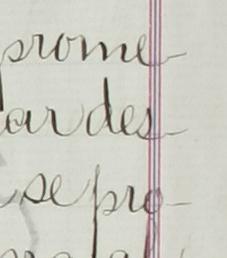 prome
ar des
se pro